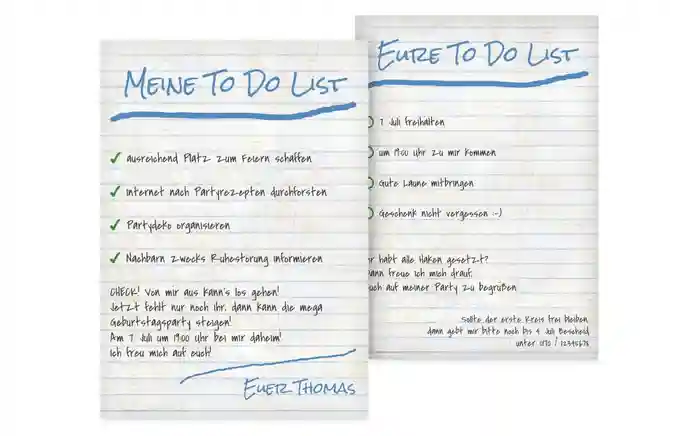 MEINE TO DO LIST
✓ ausreichend Platz zum Feiern schaffen
✓ Internet nach Partyrezepten durchforsten
✓ Partydeko organisieren
✓ Nachbarn zwecks Ruhestörung informieren
CHECK! Von mir aus kann's los gehen!
Jetzt fehlt nur noch ihr, dann kann die mega
Geburtstagsparty steigen!
Am 7. Juli um 19:00 Uhr bei mir daheim!
Ich freu mich auf euch!
EUER THOMAS
EURE TO DO LIST
7. Juli freihalten
um 19:00 Uhr zu mir kommen
Gute Laune mitbringen
Geschenk nicht vergessen :-)
hr habt alle Haken gesetzt?
ann freue ich mich drauf,
uch auf meiner Party zu begrüßen
Sollte der erste Kreis frei bleiben,
dann gebt mir bitte noch bis 4. Juli Bescheid
unter 0170 / 12345678